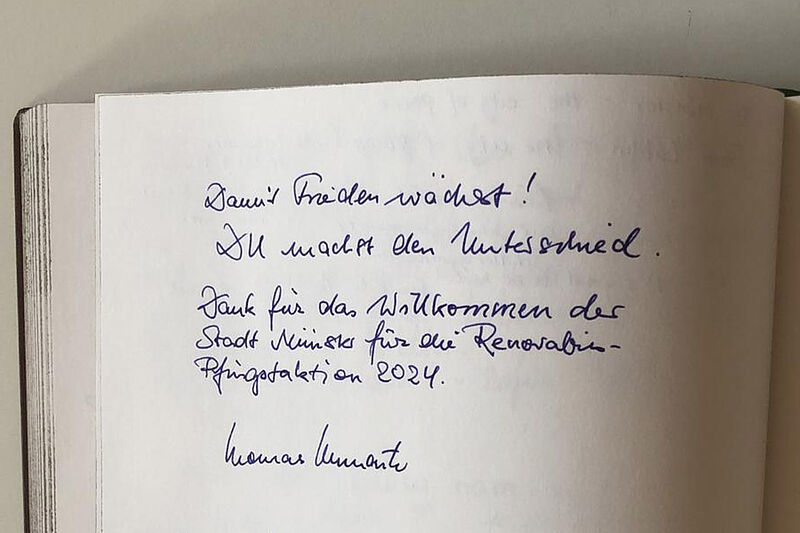 Damit Frieden wächst!
DU machst den Unterschied.
Dank für das Willkommen der
Stadt Münster für die Renovabis-
Pfingstaktion 2024.
Thomas